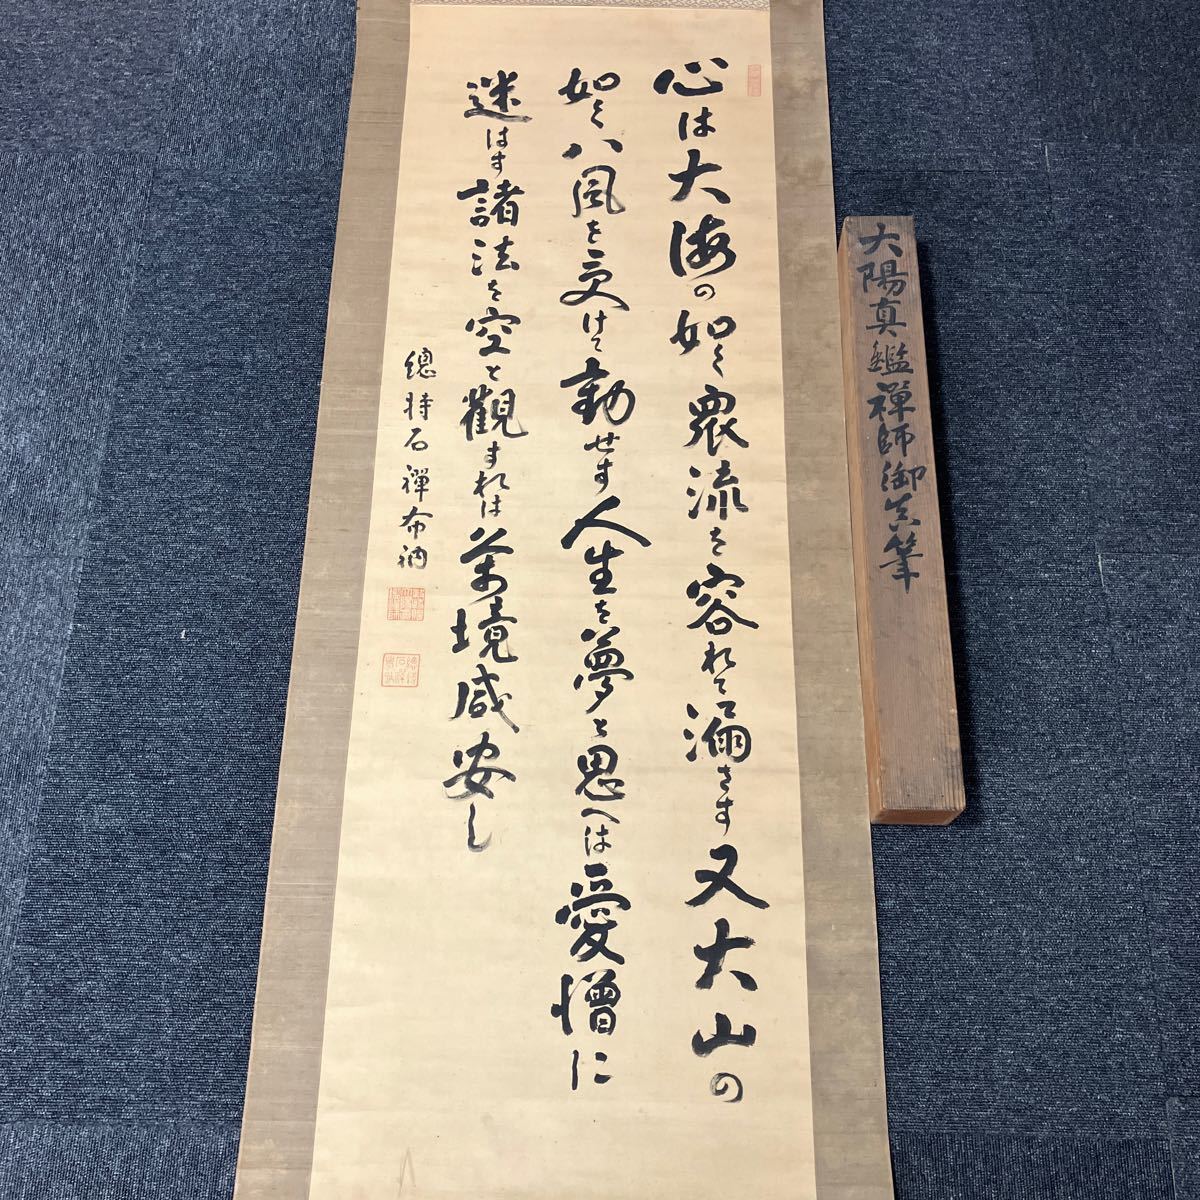 心は大海の如く衆流を容れて漏さす又大山の
如く八風を受けて動せす人生を夢と思へは愛憎に
迷はす諸法を空と觀すれは萬境咸安し
總持石禪布衲
大陽真鑑禅師御真筆